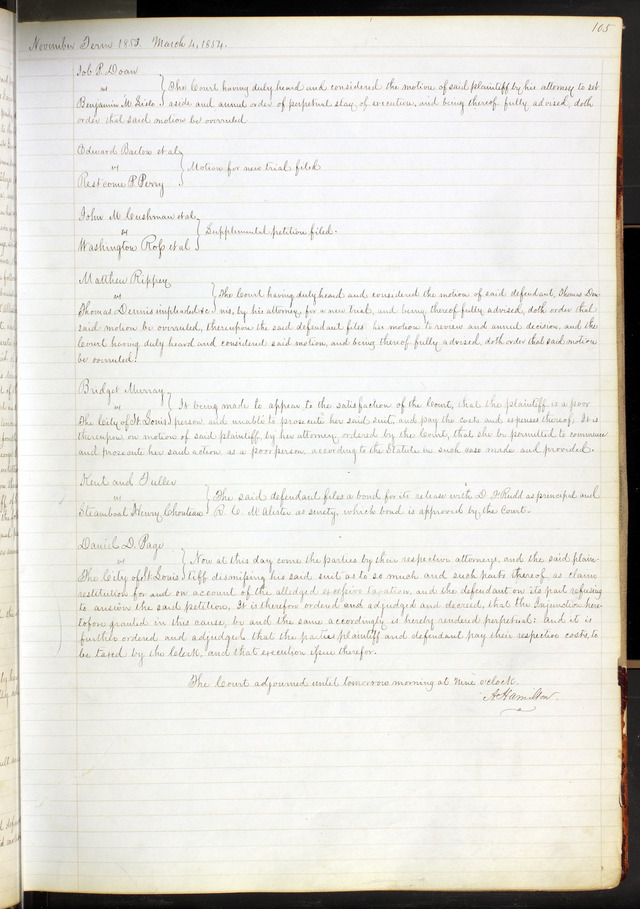 105
November Term 1853. March 4, 1854.
Job P. Doan
vs } The Court having duly heard and considered the motion of said plaintiff by his attorney to set
Benjamin M. aside and annul order of perpetual stay of execution, and being thereof fully advised, doth
order that said motion be overruled
Edward Barlow et al
vs } Motion for new trial filed
Restcome P. Perry
John M. Cushman et al
vs } Supplemental petition filed.
Washington Ross et al
Matthew Rippey
vs } The Court having duly heard and considered the motion of said defendant, Thomas Den-
Thomas Dennis impleaded &c nis, by his attorney for a new trial, and being thereof fully advised, doth order that
said motion be overruled, thereupon the said defendant files his motion to review and annul decision, and the
Court having duly heard and considered said motion, and being thereof fully advised, doth order that said motion
be overruled.
Bridget Murray
vs } It being made to appear to the satisfaction of the Court, that the plaintiff is a poor
The City of St. Louis person, and unable to prosecute her said suit, and pay the costs and expenses thereof, It is
thereupon on motion of said plaintiff, by her attorney, ordered by the Court, that she be permitted to commence
and prosecute her said action, as a poor person, according to the Statute in such case made and provided.
Kent and Fuller
vs } The said defendant files a bond for its release with D. as principal and
Steamboat Henry Chouteau R. C. McAlister as surety, which bond is approved by the Court.
Daniel D. Page
vs } Now at this day come the parties by their respective attorneys, and the said plain-
The City of St. Louis tiff dismissing his said suit as to so much and such parts thereof as claim
restitution for and on account of the alledged excessive taxation, and the defendant on its part refusing
to answer the said petition, It is therefore ordered and adjudged and decreed, that the Injunction here-
tofore granted in this cause, be and the same accordingly is hereby rendered perpetual: and it is
further ordered and adjudged that the parties plaintiff and defendant pay their respective costs, to
be taxed by the Clerk, and that execution issue therefor.
The Court adjourned until tomorrow morning at nine o'clock.
A. Hamilton.